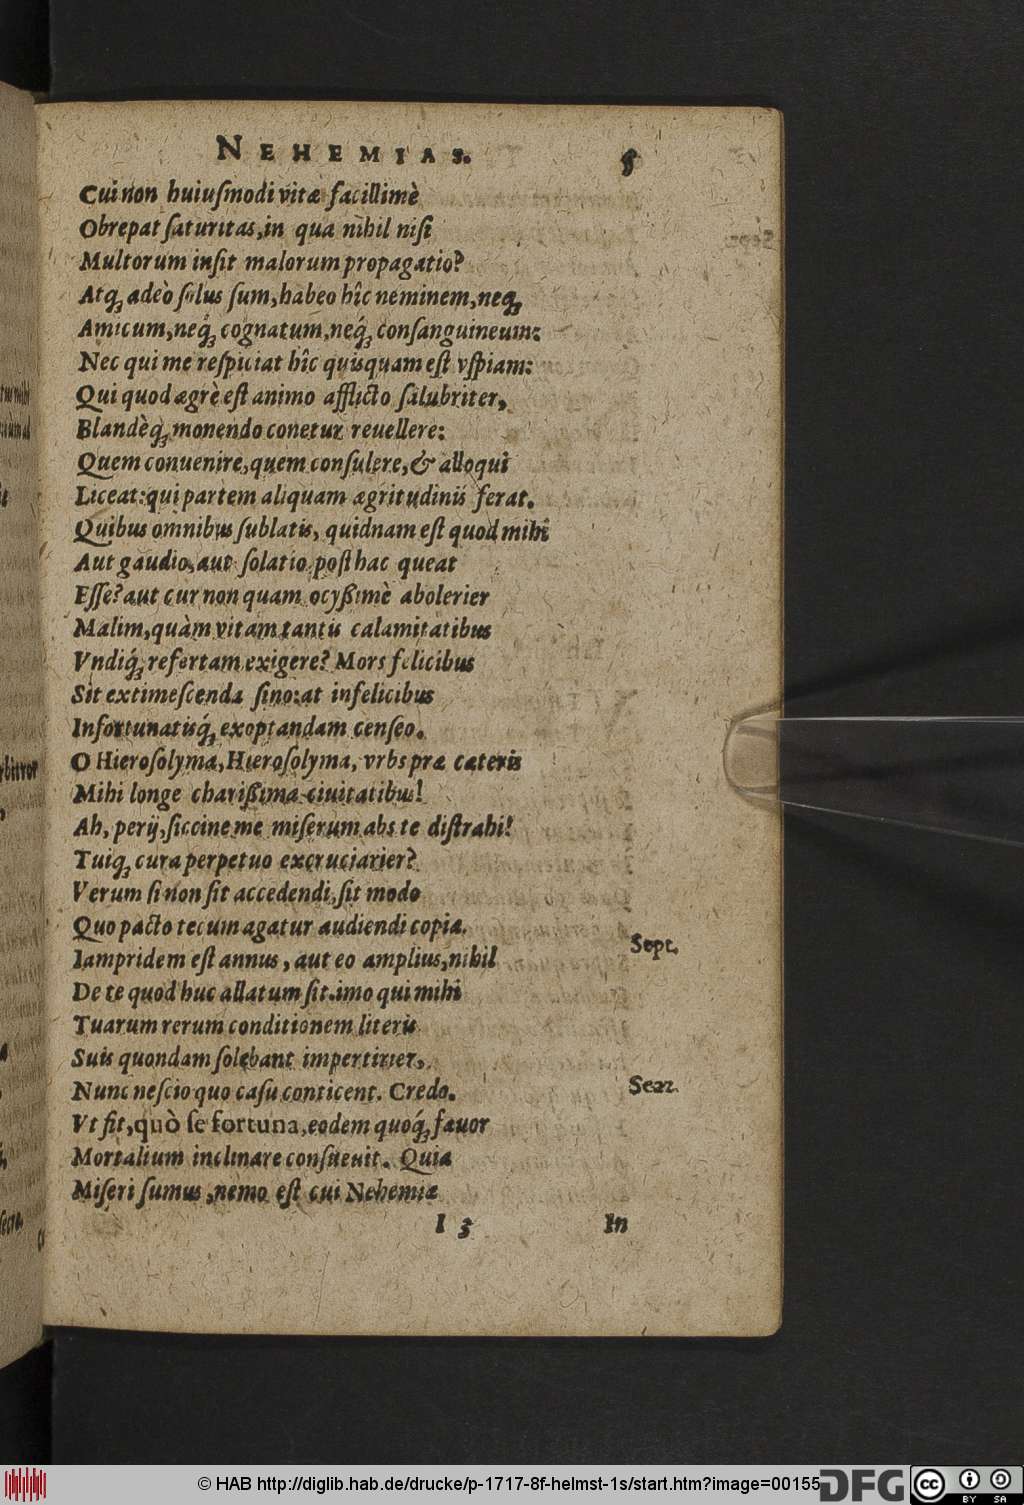 NEHEMIAS. 5
Cui non huiuſmodi vitæ facillimè
Obrepat ſaturitas, in qua nihil niſi
Multorum inſit malorum propagatio?
Atq; adeò ſolus ſum, habeo hîc neminem, neq;
Amicum, neq́; cognatum, neq́; conſanguineum:
Nec qui me reſpiciat hîc quisquam eſt vſpiam:
Qui quod ægrè eſt animo afflicto ſalubriter,
Blandèq́; monendo conetur reuellere:
Quem conuenire, quem conſulere, & alloqui
Liceat: qui partem aliquam ægritudinis ferat.
Quibus omnibus ſublatis, quidnam eſt quod mihi
Aut gaudio, aut ſolatio poſthac queat
Eſſe? aut cur non quam ocyßimè abolerier
Malim, quàm vitam tantis calamitatibus
Vndiq́; refertam exigere? Mors felicibus
Sit extimeſcenda ſino: at infelicibus
Infortunatisq́; exoptandam cenſeo.
O Hieroſolyma, Hieroſolyma, vrbs præ cæteris
Mihi longe charißima ciuitatibus!
Ah, perij, ſiccine me miſerum abs te diſtrahi!
Tuiq; cura perpetuo excruciarier?
Verum ſi non ſit accedendi, ſit modo
Quo pacto tecum agatur audiendi copia.
Iampridem eſt annus, aut eo amplius, nihil
Sept.
De te quod huc allatum ſit. imo qui mihi
Tuarum rerum conditionem literis
Suis quondam ſolebant impertirier,
Nunc neſcio quo caſu conticent. Credo.
Sear.
Vt fit, quò ſe fortuna, eodem quoq́; fauor
Mortalium inclinare conſueuit. Quia
Miſeri ſumus, nemo eſt cui Nehemiæ
I 3 In
© HAB http://diglib.hab.de/drucke/p-1717-8f-helmst-1s/start.htm?image=00155
DFG
cc BY SA